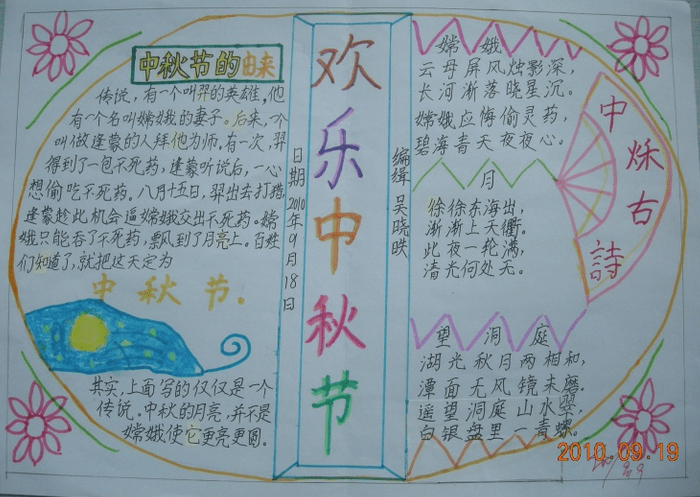 中秋节的由来
传说，有一个叫羿的英雄，他
有一个名叫嫦娥的妻子。后来，一个
叫做逢蒙的人拜他为师。有一次，羿
得到了一包不死药，逢蒙听说后，一心
想偷吃不死药。八月十五日，羿出去打猎，
逢蒙趁此机会逼嫦娥交出不死药。嫦
娥只能吞了不死药，飘风到了月亮上。百姓
们知道了，就把这天定为
中秋节.
其实，上面写的仅仅是一个
传说。中秋的月亮，并不是
嫦娥使它更亮更圆。
日期2010年9月18日
欢乐中秋节
编缉 吴晓昳
嫦娥
云母屏风烛影深，
长河渐落晓星沉。
嫦娥应悔偷灵药，
碧海青天夜夜心。
月
徐徐东海出，
渐渐上天衢。
此夜一轮满，
清光何处无。
望洞庭
湖光秋月两相和，
潭面无风镜未磨，
遥望洞庭山水翠，
白银盘里一青螺。
中烁古詩
2010.09.19